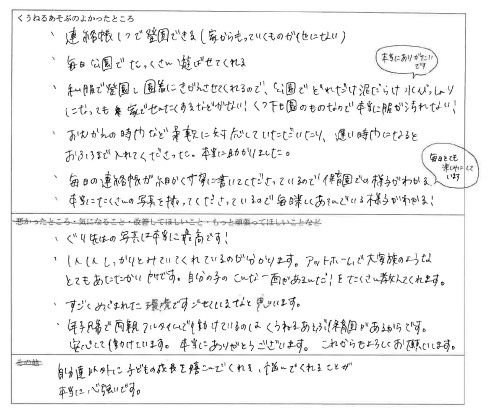 くうねるあそぶのよかったところ
・ 連絡帳1つで登園できる(家からもっていくものが他にない)
・ 毎日公園でたっくさん遊ばせてくれる
本当にありがたいです
・ 私服で登園し園着にきがえさせてくれるので、公園でどれだけ泥だらけ水びっしょり
になっても家でせんたくするなどがない! くつ下も園のものなので本当に服が汚れない!
・ おむかえの時間など柔軟に対応していただいたり、遅い時間になると
おふろまで入れてくださった。本当に助かりました。
・ 毎日の連絡帳が細かく丁寧に書いてくださっているので保育園での様子がわかる
毎日とても楽しみにしています
・ 本当にたくさんの写真を撮ってくださっているので毎日楽しくあそんでいる様子がわかる!
悪かったところ・気になること・改善してほしいこと・もっと頑張ってほしいことなど
・ ぐり先生の写真は本当に最高です!
・ 1人1人しっかりとみていてくれているのが分かります。アットホームで大家族のような
とてもあたたかい所です。自分の子の「こんな一面があるんだ!」をたくさん教えてくれます。
・ すごくめぐまれた環境ですごせているなと思います。
・ 年子2名で両親フルタイムで働けているのはくうねるあそぶ保育園があるからです。
安心して働けています。本当にありがとうございます。これからもよろしくお願いします。
その他
自分達以外に子どもの成長を喜こんでくれる、悩んでくれることが
本当に心強いです。